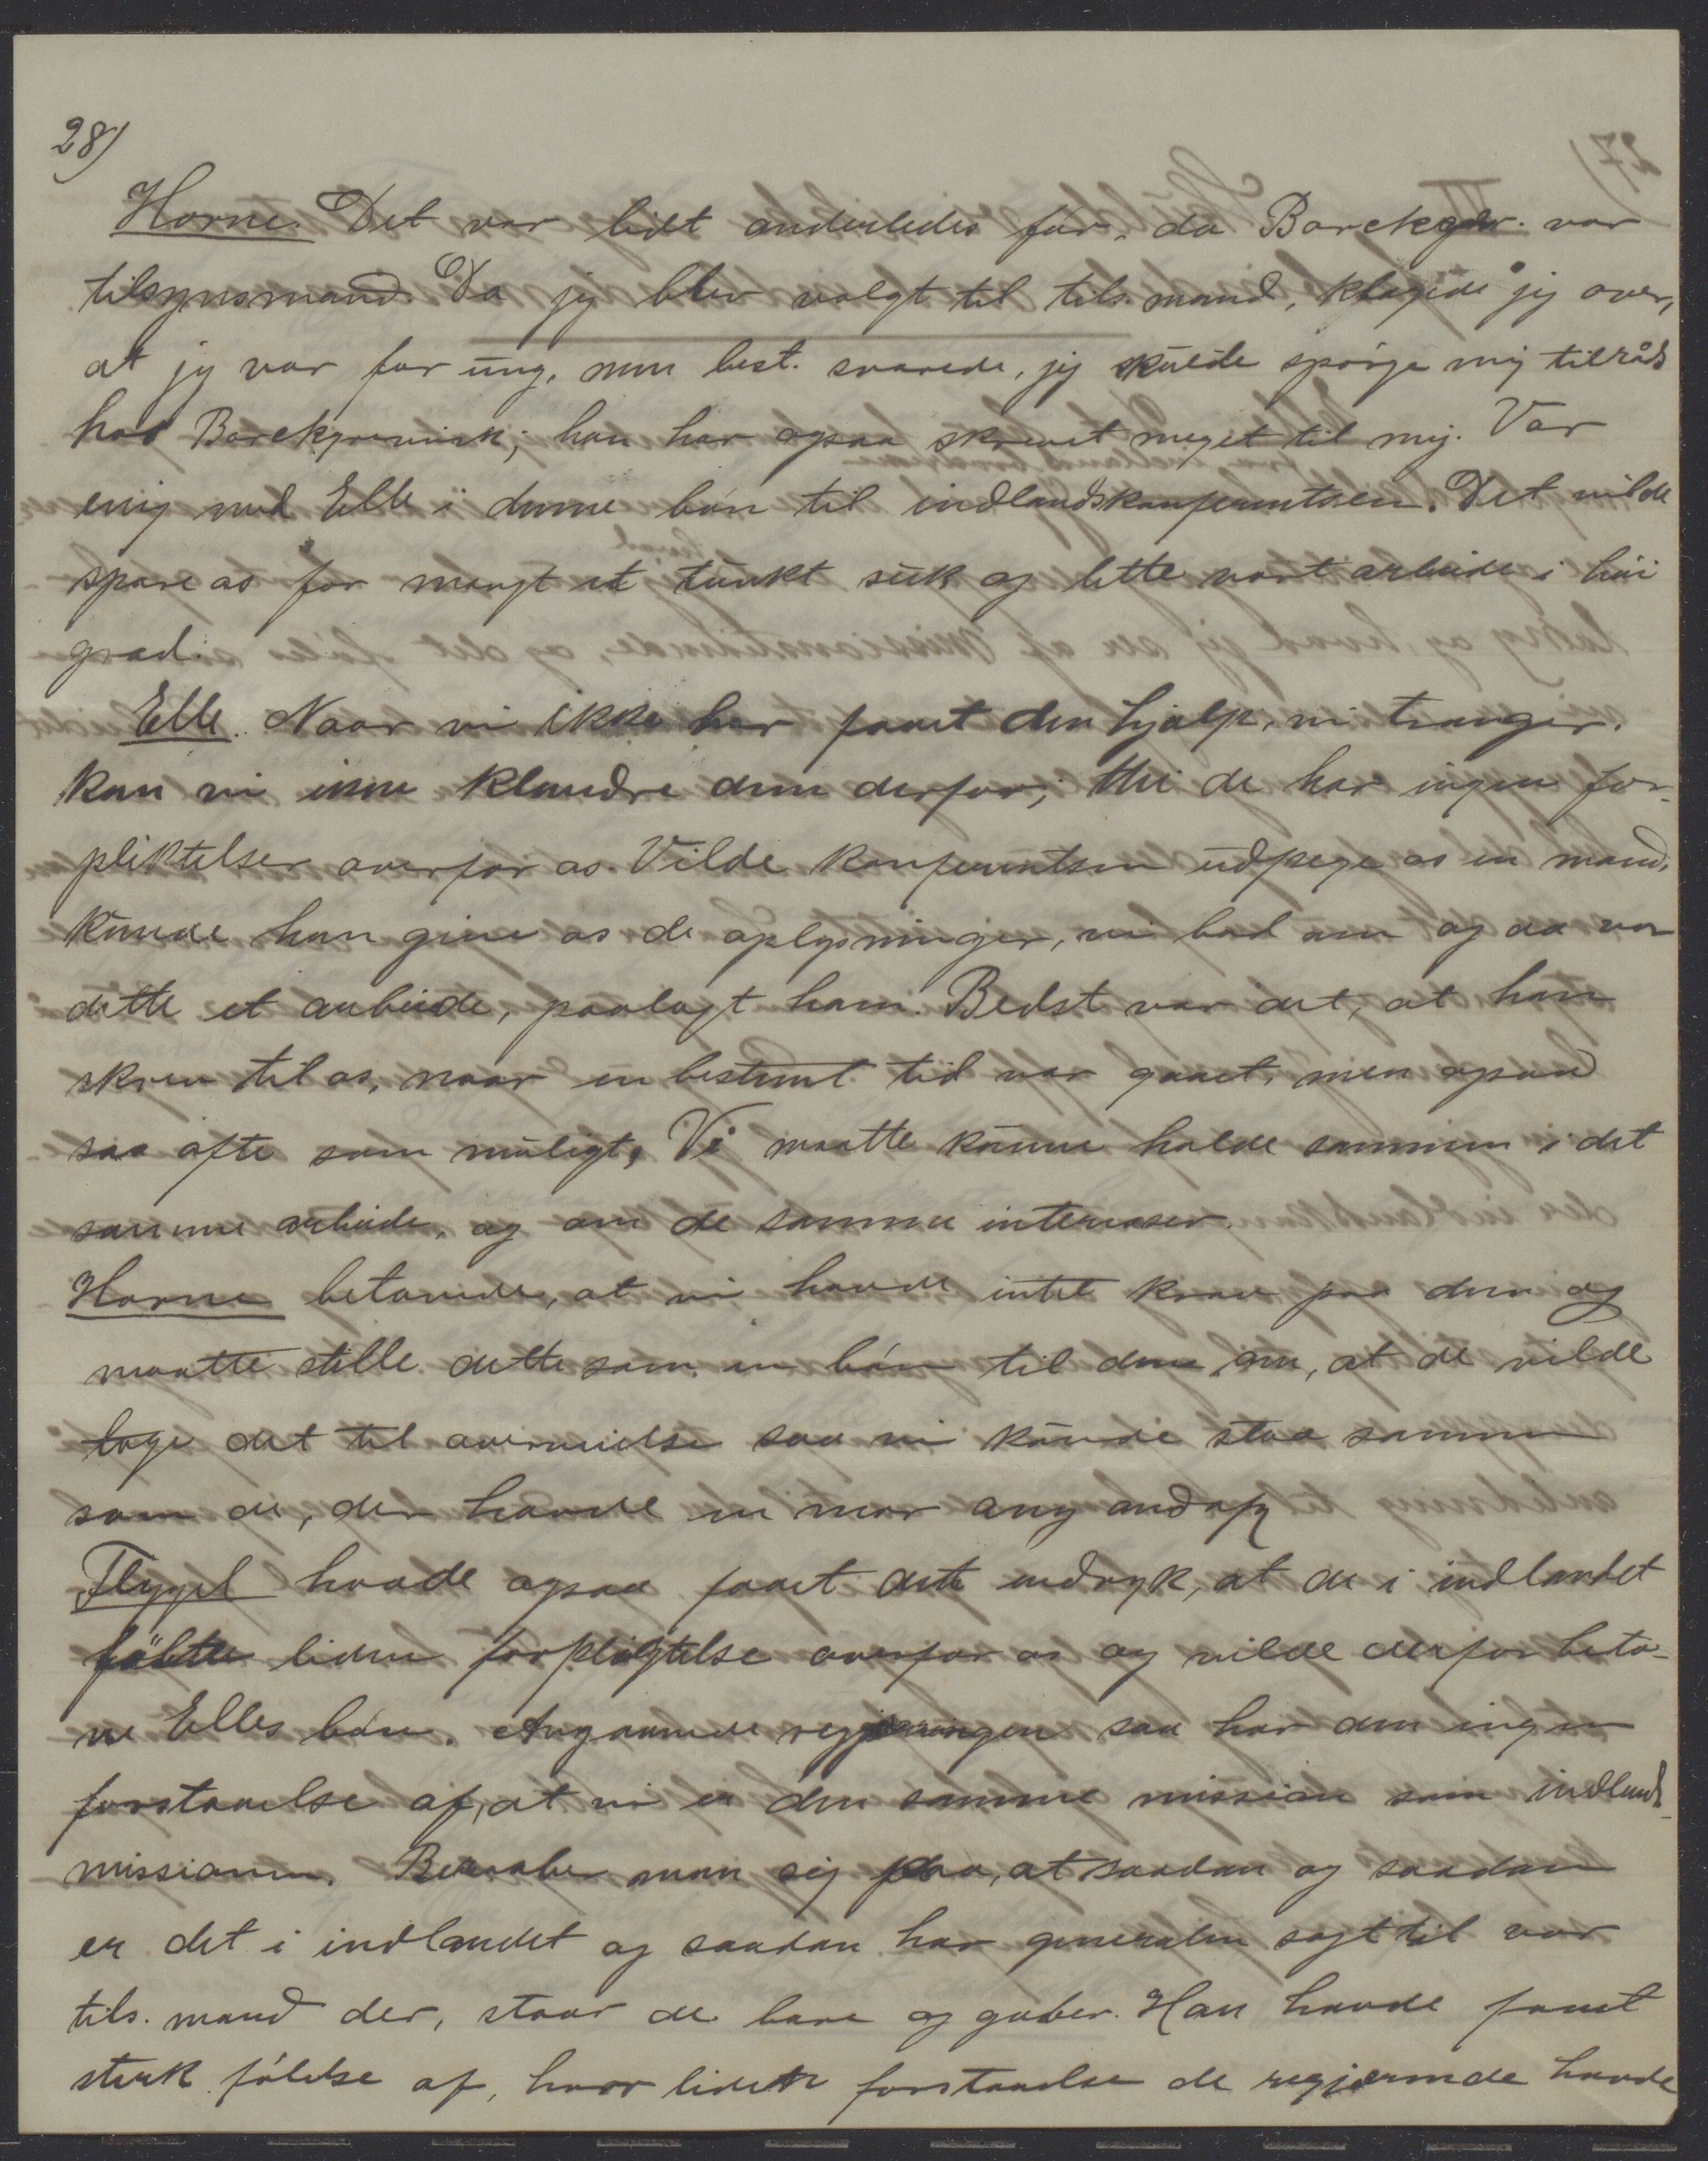 28)
Horne. Det var lidt anderledes før, da Borckgr. var
tilsynsmand. Da jeg blev valgt til tils.mand, klagede jeg over,
at jeg var for ung, men best. svarede, jeg skulde spørge mig tilråds
hos Borckgrevink; han har ogsaa skrevet meget til mig. Var
enig med Elle i denne bøn til indlandskonferentsen. Det vilde
spare os for mangt et tungt suk og lette vort arbeide i høi
grad.
Elle. Naar vi ikke har faaet den hjælp, vi trænger,
kan vi ikke klandre dem derfor; thi de har ingen for-
pliktelser overfor os. Vilde konferentsen udpege os en mand,
kunde han give os de oplysninger, vi bad om og da var
dette et arbeide, paalagt ham. Bedst var det, at han
skrev til os, naar en bestemt tid var gaaet, men ogsaa
saa ofte som muligt. Vi maatte kunne holde sammen i det
samme arbeide, og om de samme interesser.
Horne betonede, at vi havde intet krav paa dem og
maatte stille dette som en bøn til dem om, at de vilde
tage det til overveielse saa vi kunde staa sammen
som de, der havde en mor
Flygel havde ogsaa faaet det indtryk, at de i indlandet
følte liden forpligtelse overfor os og vilde derfor beto-
ne Elles bøn. Angaaende regjeringen saa har den ingen
forstaaelse af, at vi er den samme mission som indlands-
missionen. Beraaber man sig paa, at saadan og saadan
er det i indlandet og saadan har generalen sagt til vor
tils. mand der, staar de bare og gaber. Han havde faaet
sterk følelse af, hvor liden forstaaelse de regjerende havde